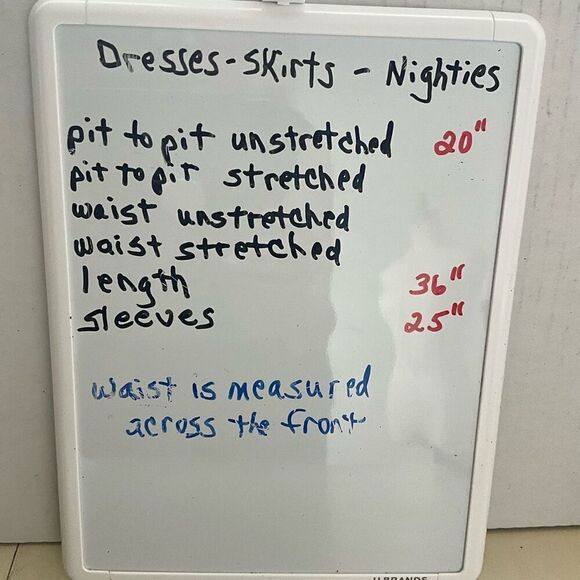 Dresses - Skirts - Nighties
pit to pit unstretched 20"
pit to pit stretched
waist unstretched
waist stretched
length 36"
sleeves 25"
waist is measured
across the front
U BRANDS